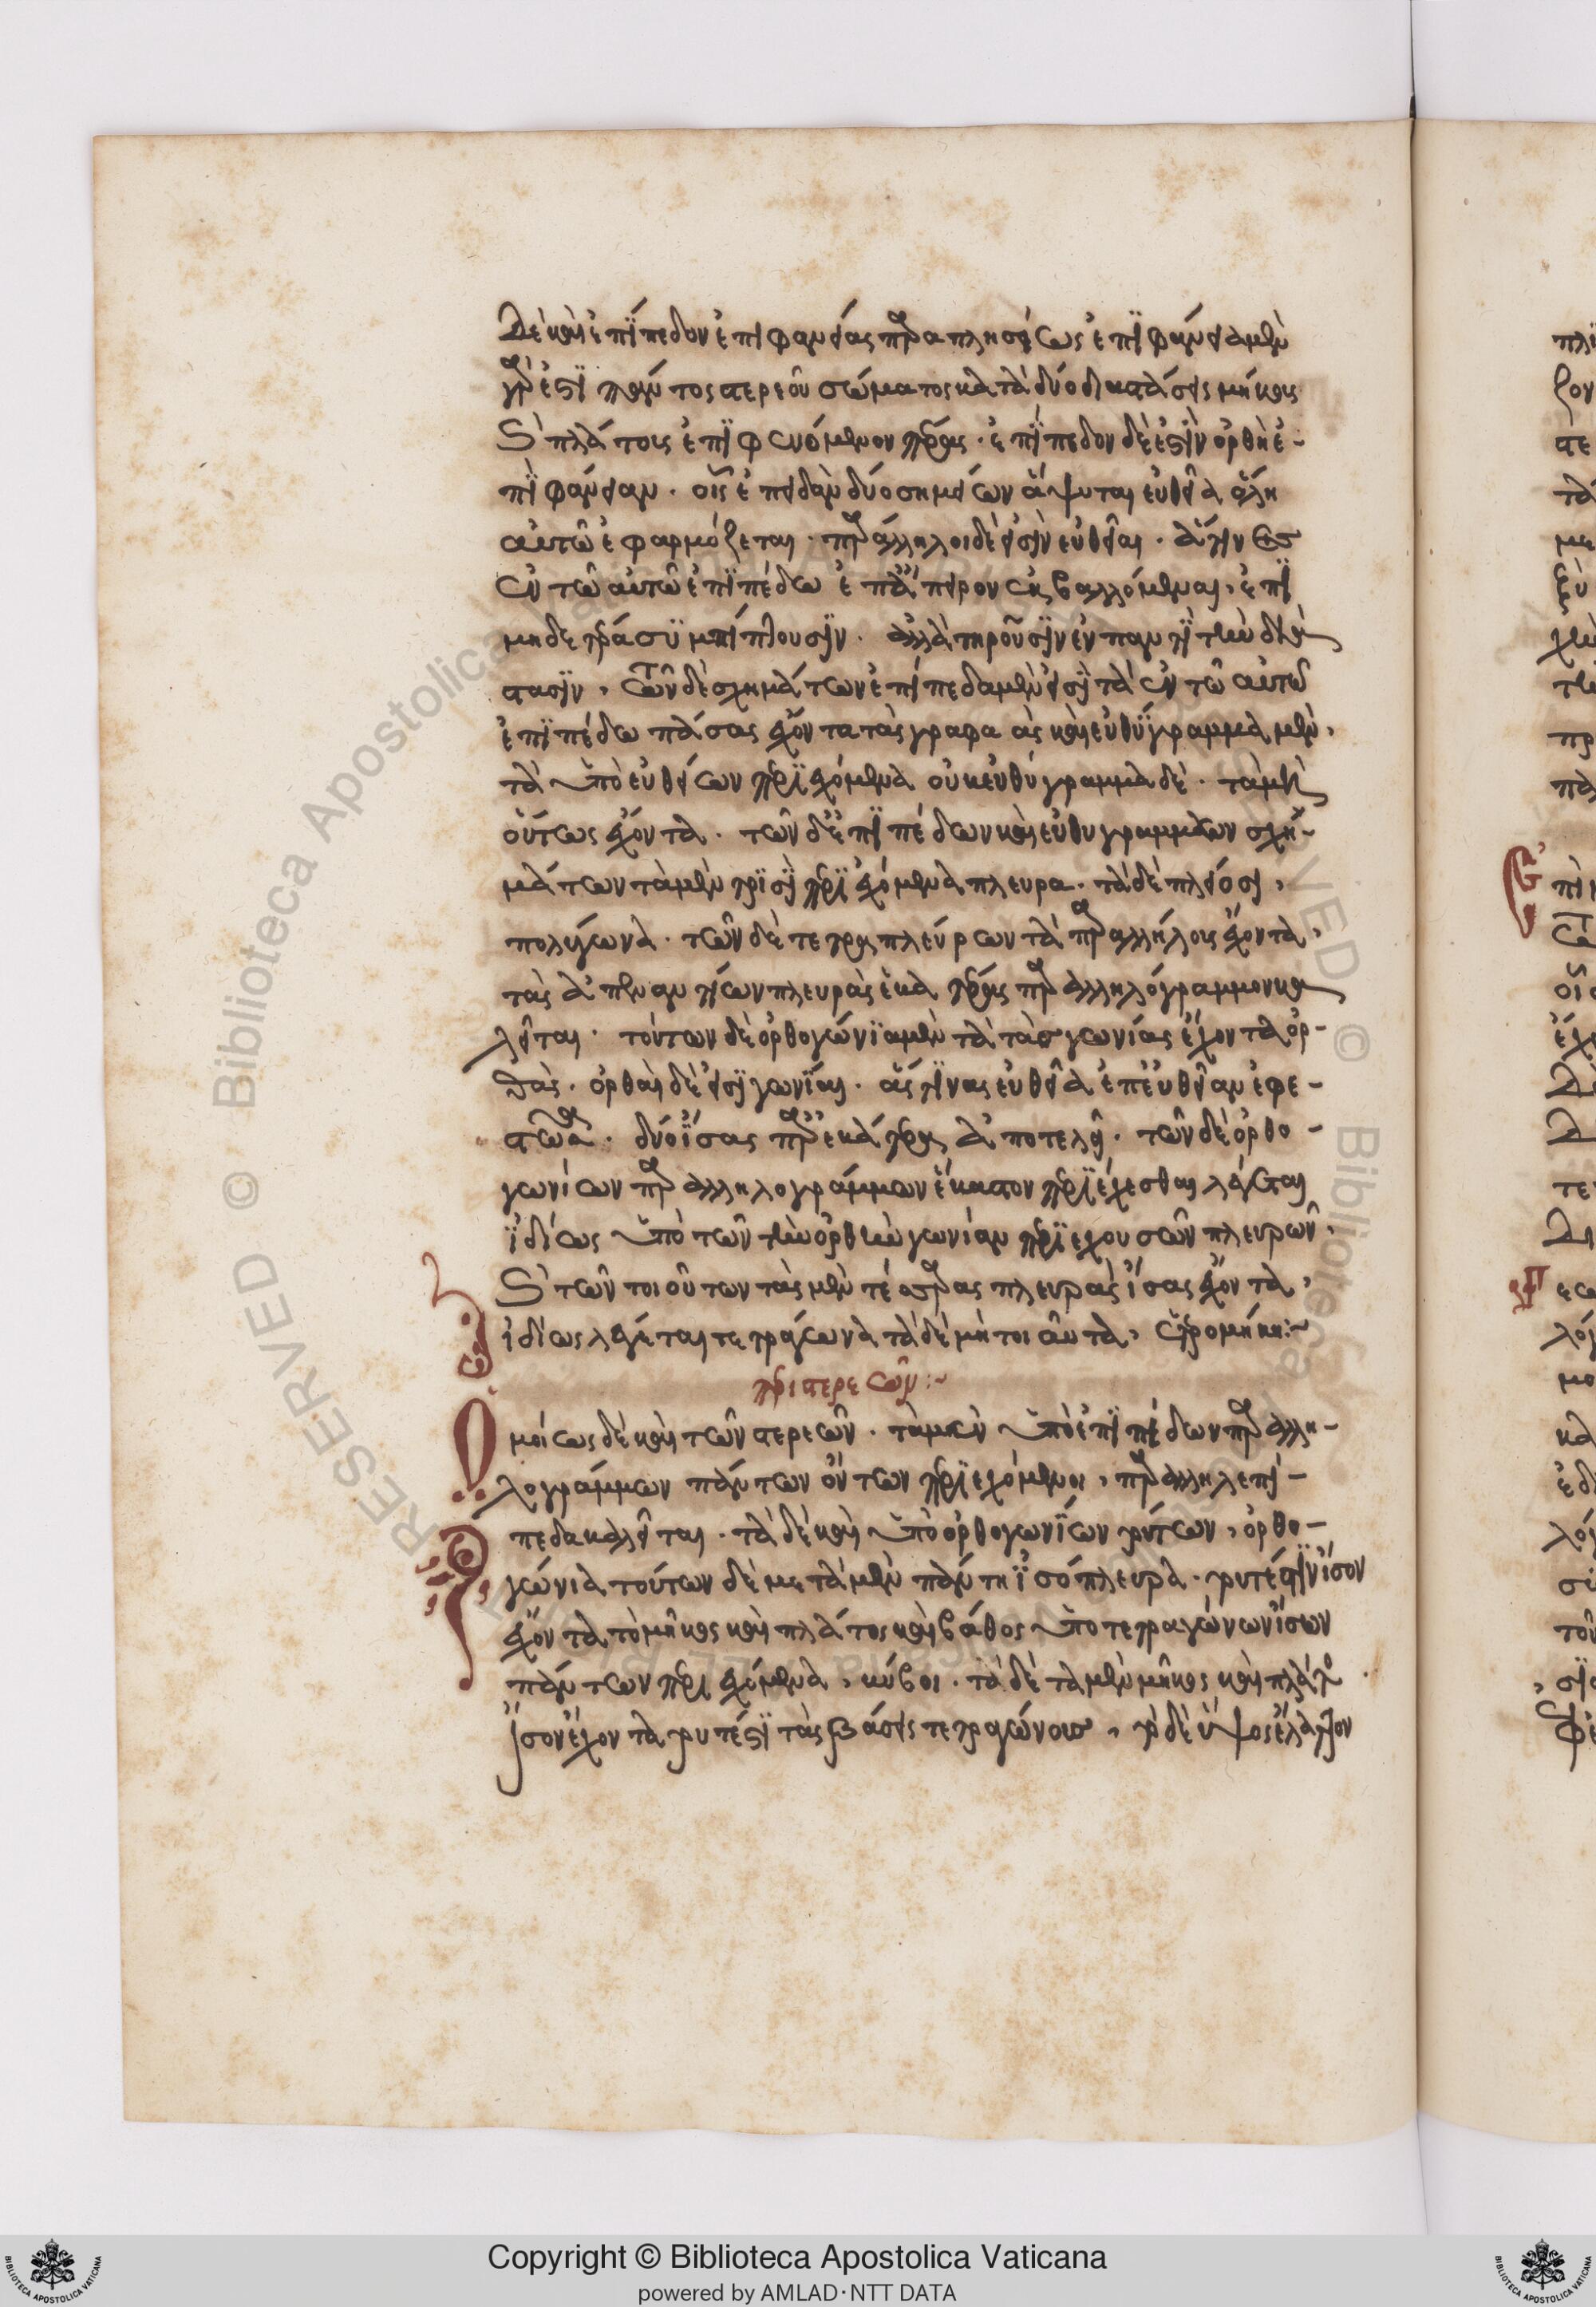 δὲ καὶ ἐπίπεδον ἐπιφανείας παραπλησίως ἐπιφάνεια μὲν
γάρ ἐστι παντὸς στερεοῦ σώματος κατὰ δύο διαστάσεις μήκους
καὶ πλάτους ἐπιφαινόμενον πέρας · ἐπίπεδον δὲ ἐστὶν ὀρθὴ ἐ-
πιφάνειαν · οἷς ἐπειδὰν δύο σημείων ἅψηται εὐθεῖα ὅλη
αὐτῶ ἐφαρμόζεται · παράλληλοι δὲ εἰσὶν εὐθεῖαι · αἵτινες
ἐν τῶ αὐτῶ ἐπιπέδω ἐπ' ἄπειρον ἐκβαλλόμεναι, ἐπὶ
μηδετέρα συμπίπτουσιν · ἀλλὰ τηροῦσιν ἐν παντὶ τὴν διά
στασιν, τῶν δὲ σχημάτων ἐπίπεδα μὲν εἰσὶ τὰ ἐν τῶ αὐτῶ
ἐπιπέδω πάσας ἔχοντα τὰς γραφα ὰς καὶ εὐθύγραμμα μὲν,
τὰ ὑπὸ εὐθειῶν περιεχόμενα οὐκ εὐθύγραμμα δὲ · τὰ μὴ
οὕτως ἔχοντα · τῶν δὲ ἐπιπέδων καὶ εὐθυγραμμων σχη-
μάτων τὰ μὲν τρισὶ περιεχόμενα πλευρα · τὰ δὲ πλείοσι,
πολύγωνα · τῶν δὲ τετραπλεύρων τὰ παραλλήλους ἔχοντα,
τὰς ἀπεναντίων πλευρὰς ἑκατέρας παραλληλόγραμμον κα
λεῖται · τούτων δὲ ὀρθογώνια μὲν τὰ τὰς γωνίας ἔχοντα ὀρ-
θάς · ὀρθαὶ δὲ εἰσὶ γωνίαι · ἅς τινας εὐθεῖα ἐπ' εὐθεῖαν ἐφε-
στῶσα · δύο ἴσας παρ' ἑκάτερα ἀποτελεῖ · τῶν δὲ ὀρθο-
γωνίων παραλληλογράμμων ἕκαστον περιέχεσθαι λέγεται
ἰδίως ὑπὸ τῶν τὴν ὀρθὴν γωνίαν περιεχουσῶν πλευρῶν,
καὶ τῶν τοιούτων τὰς μὲν τέσσαρας πλευρὰς ἴσας ἔχοντα,
ἰδίως λέγεται τετράγωνα τὰ δὲ μὴ τοιαῦτα, ἑτερομήκη:~
περι στερεῶν:~
Ὁμοίως δὲ καὶ τῶν στερεῶν · τὰ μὲν ὑπὸ ἐπιπέδων παραλλη-
λογράμμων πάντων ὄντων περιεχόμενοι, παραλληλεπί-
πεδα καλεῖται · τὰ δὲ καὶ ὑπὸ ὀρθογωνίων τούτων, ὀρθο-
γώνια τούτων δέ με τὰ μὲν πάντη ἰσόπλευρα · τουτέστιν ἴσον
ἔχοντα τὸ μῆκος καὶ πλάτος καὶ βάθος ὑπο τετραγώνων ἴσων
πάντων περιεχόμενα, κύβοι · τὰ δὲ τὰ μὲν μῆκος καὶ πλάτος
ἴσον ἔχοντα τουτέστι τὰς βάσεις τετραγώνους, τὸ δὲ ὕψος ἔλαττον
Copyright © Biblioteca Apostolica Vaticana
powered by AMLAD·NTT DATA